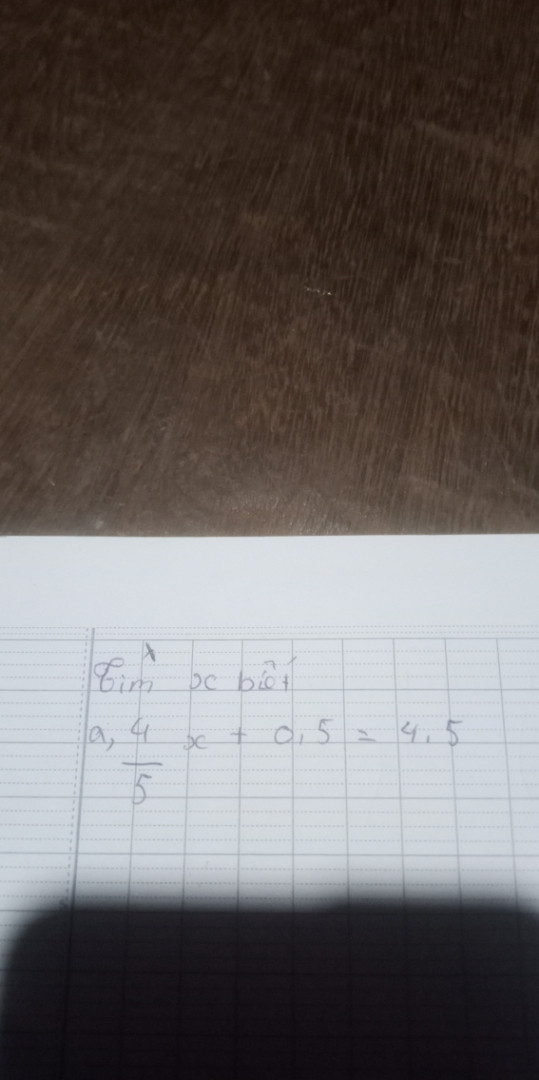 Tìm x biết
a, 4/5 x + 0,5 = 4,5